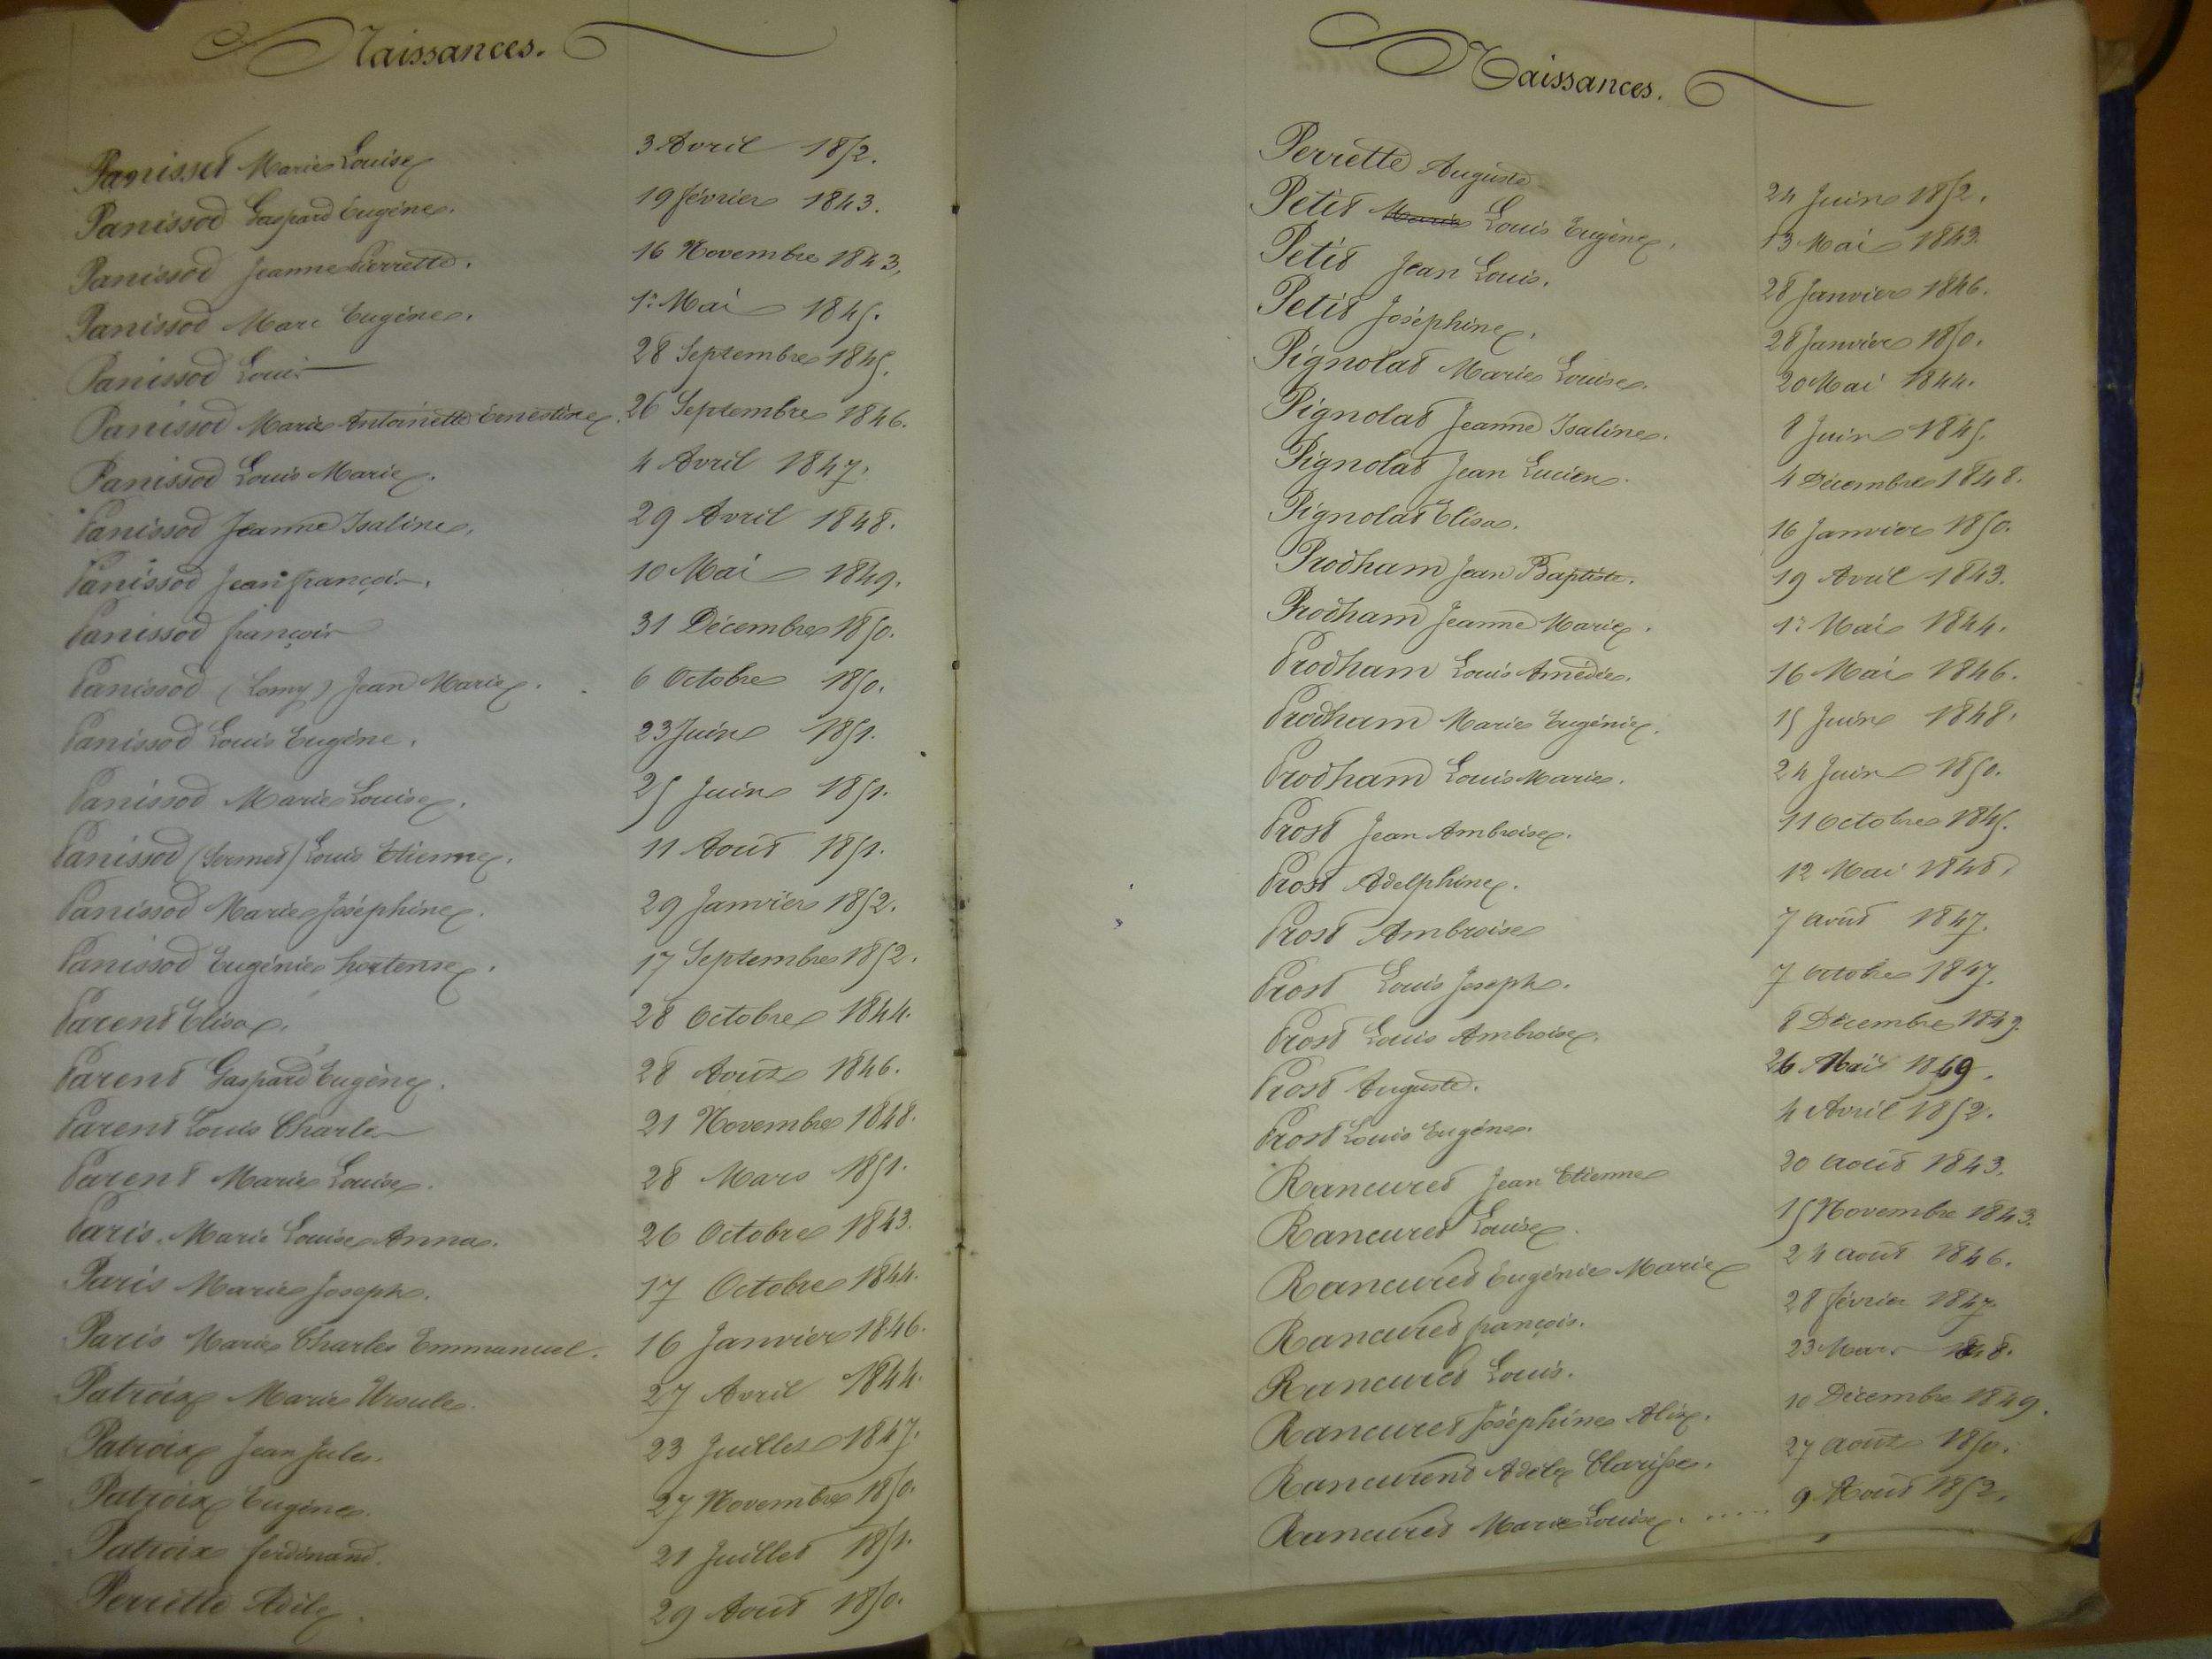 Naissances.
Panisset Marie Louise 3 Avril 1852.
Panissod Gaspard Eugène. 19 février 1843.
Panissod Jeanne Pierrette. 16 Novembre 1843.
Panissod Marc Eugène. 1er Mai 1845.
Panissod Louis 28 Septembre 1845.
Panissod Marie Antoinette Ernestine. 26 Septembre 1846.
Panissod Louis Marie. 4 Avril 1847.
Panissod Jeanne Isaline. 29 Avril 1848.
Panissod Jean françois. 10 Mai 1849.
Panissod françois 31 Décembre 1850.
Panissod Jean Marie. 6 Octobre 1850.
Panissod Louis Eugène. 23 Juin 1851.
Panissod Marie Louise. 25 Juin 1851.
Panissod Louis Etienne. 11 Août 1851.
Panissod Marie Joséphine. 29 Janvier 1852.
Panissod Eugénie hortense. 17 Septembre 1852.
Parent Elisa. 28 Octobre 1844.
Parent Gaspard Eugène. 28 Août 1846.
Parent Louis Charles 21 Novembre 1848.
Parent Marie Louise. 28 Mars 1851.
Paris. Marie Louise Anna. 26 Octobre 1843.
Paris Marie Joseph. 17 Octobre 1844.
Paris Marie Charles Emmanuel. 16 Janvier 1846.
Patroix Marie Ursule. 27 Avril 1844.
Patroix Jean Jules. 23 Juillet 1847.
Patroix Eugène. 27 Novembre 1850.
Patroix ferdinand. 21 Juillet 1851.
Perrette Adèle. 29 Août 1850.
Naissances.
Perrette Auguste 24 Juin 1852.
Petit Marie Louis Eugène. 13 Mai 1843.
Petit Jean Louis. 28 Janvier 1846.
Petit Joséphine. 28 Janvier 1850.
Pignolat Marie Louise. 20 Mai 1844.
Pignolat Jeanne Isaline. 8 Juin 1845.
Pignolat Jean Lucien. 4 Décembre 1848.
Pignolat Elisa. 16 Janvier 1850.
Prodham Jean Baptiste. 19 Avril 1843.
Prodham Jeanne Marie. 1er Mai 1844.
Prodham Louis Amédée. 16 Mai 1846.
Prodham Marie Eugénie. 15 Juin 1848.
Prodham Louis Marie. 24 Juin 1850.
Prost Jean Ambroise. 11 Octobre 1845.
Prost Adelphine. 12 Mai 1848.
Prost Ambroise 7 août 1847.
Prost Louis Joseph. 7 octobre 1847.
Prost Louis Ambroise. 8 Décembre 1849.
Prost Auguste. 26 Mai
Prost Louis Eugène. 4 Avril 1852.
Rancuret Jean Etienne 20 août 1843.
Rancuret Louise. 15 Novembre 1843.
Rancuret Eugénie Marie 24 août 1846.
Rancuret françois. 28 février 1847.
Rancuret Louis. 23 Mars 1848.
Rancuret Joséphine Alix. 10 Décembre 1849.
Rancurent Adèle Clarisse. 27 août 1850.
Rancuret Marie Louise. ..... 9 Août 1852.